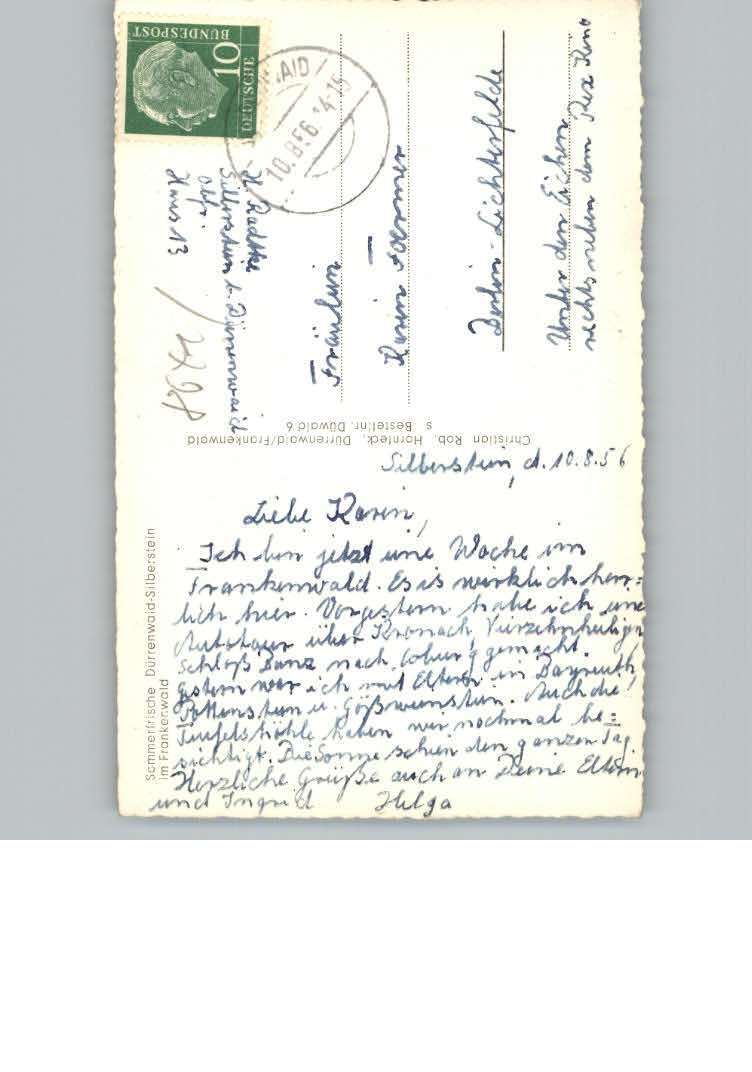 Silberstein, d. 10.8.56
Liebe Karin,
Ich bin jetzt eine Woche im
Frankenwald. Es is wirklich herr=
lich hier. Vorgestern habe ich eine
Autotour über Kronach, Vierzehnheiligen
Schloß Banz nach Coburg gemacht.
Gestern war ich mit Eltern in Bayreuth,
Pottenstein u. Gößweinstein. Auch die
Teufelshöhle haben wir nochmal be=
sichtigt. Die Sonne schien den ganzen Tag.
Herzliche Grüße auch an Deine Eltern
und Ingrid Helga
Sommerfrische Dürrenwaid-Silberstein
im Frankenwald
Christian Rob. Hornfeck, Dürrenwaid/Frankenwald
s Bestellnr. Düwaid 6
DEUTSCHE
BUNDESPOST
10
10.8.56.14-15
H. Radtke
Silberstein b. Dürrenwaid
Obfr.
Haus 13
Fräulein
Karin
Berlin-Lichterfelde
Unter den Eichen
rechts neben dem Rex Kino